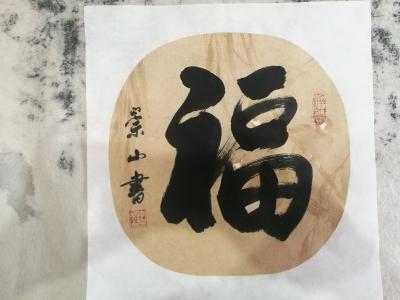 福
崇山書